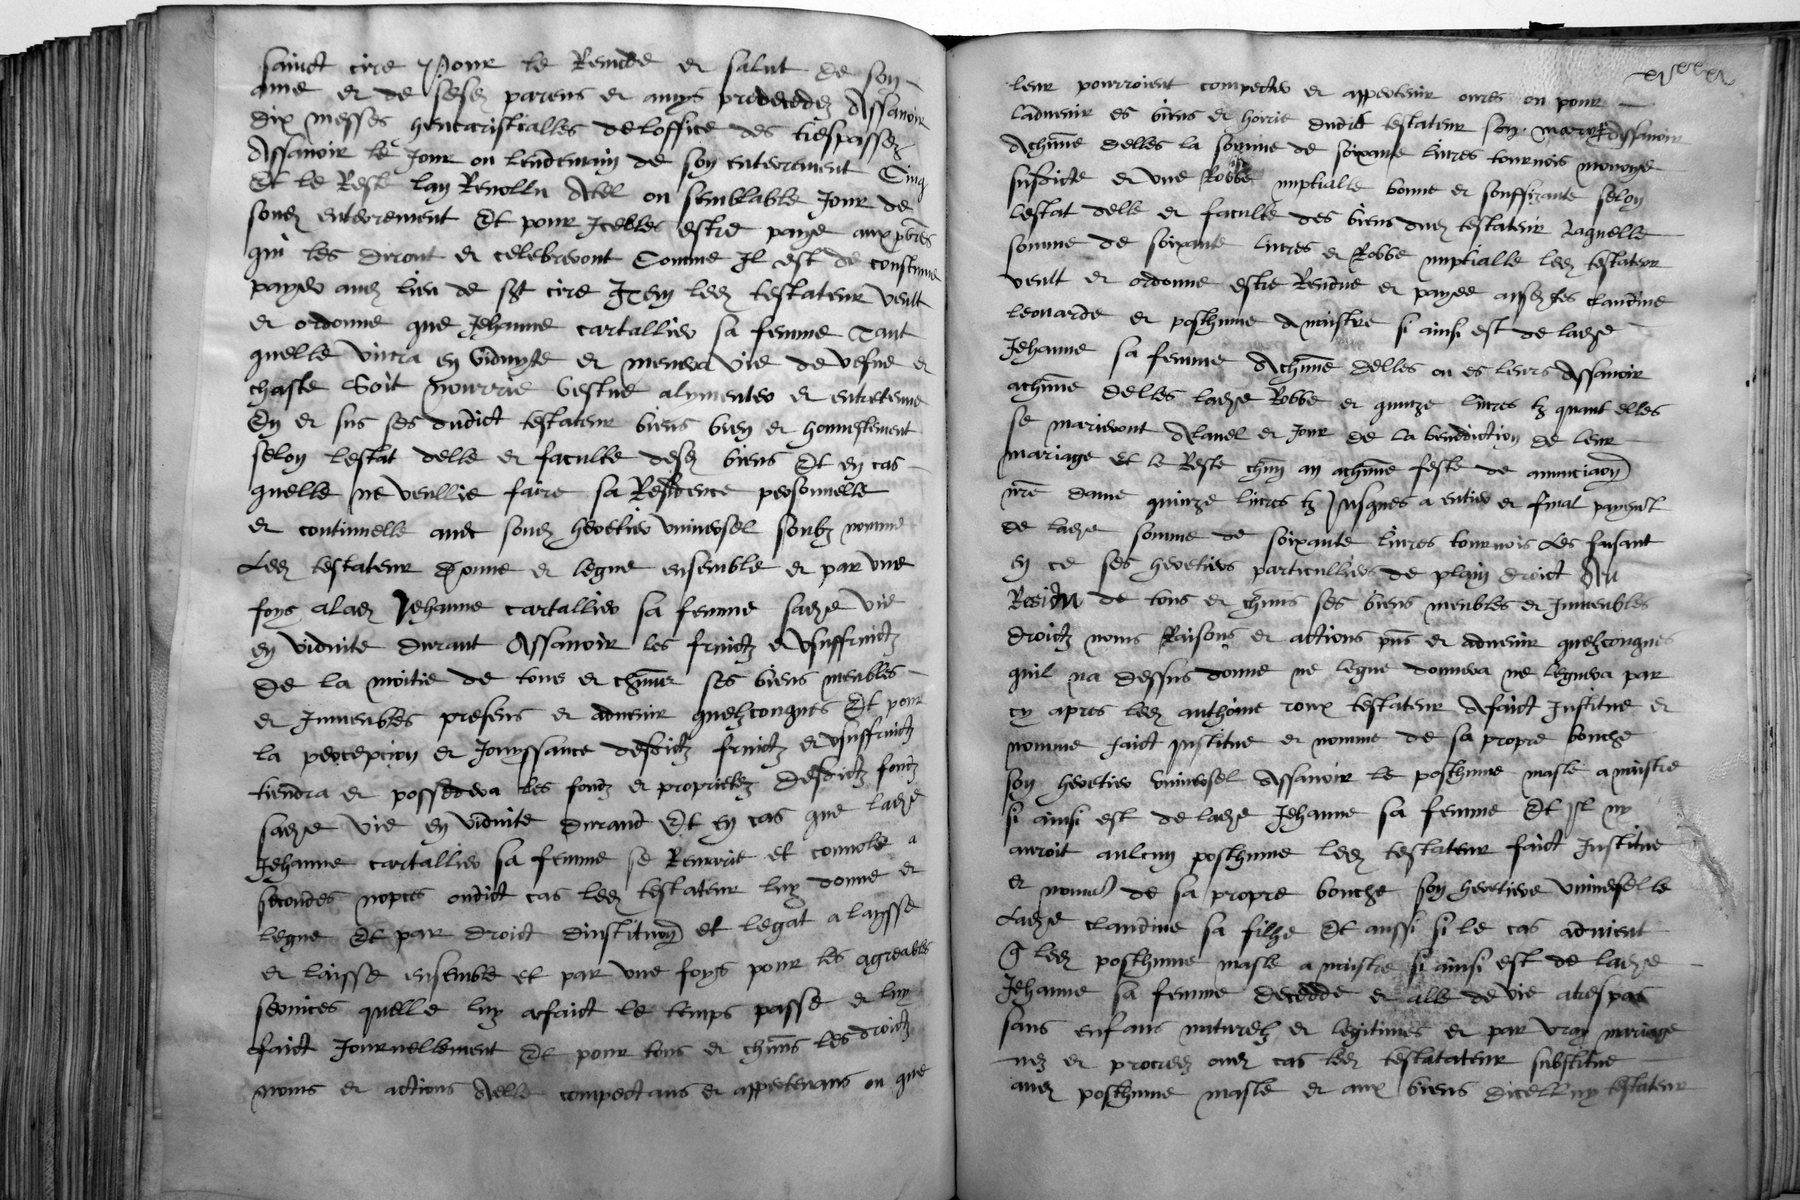 sainct cire Pour le Remede et salut de son
ame et de sesd parens et amys predecedez Assavoir
dix messes heucaristialles de loffice des trespassez
Assavoir le Jour ou lendemain de son enterrement Cinq
Et le Reste lan Revollu Atel ou semblable Jour de
sond enterrement Et pour Icelles estre paye aux pbres
qui les diront et celebreront Comme Il est de constume
payer aud lieu de sgt cire Item led testateur veult
et ordonne que Jehanne cartallier sa femme Tant
quelle vivra en viduyte et menera vie de vefve et
chaste Soit nourrie vestue alymentee et entretenue
En et sus ses dudict testateur biens bien et honnestement
selon lestat delle et faculte desd biens Et en cas
quelle ne veullie faire sa Residence personnelle
et continuelle avec sond heretier universel soubz nomme
Led testateur Donne et legue ensemble et par une
foys alad Jehanne cartallier sa femme sadte vie
en viduite durant Assavoir les fruictz et usuffruictz
De la moitie de tous et chuns ses biens meubles
et Immeubles presens et advenir quelzconques Et pour
la perception et Jouyssance desdictz fruictz et usuffruictz
tiendra et possedera les fondz et proprietez desdictz fondz
sadte vie en viduite durand Et en cas que ladte
Jehanne cartallier sa femme se Remarie et convole a
secondes nopces oudict cas led testateur luy donne et
legue Et par droict dinstituon et legat a laysse
et laisse ensemble et par une foys pour les agreables
services quelle luy afaict le temps passe et luy
faict Journellement Et pour tous et chuns les droictz
noms et actions Aelle competans et appertenans ou que
leur pourroient competer et appertenir ores ou pour
ladvenir es biens et hoirie dudict testateur son mary Assavoir
Achune delles la somme de soixante livres tournois monoye
susdicte et une Robbe nuptialle bonne et souffizante selon
lestat delle et faculte des biens dud testateur Laquelle
somme de soixante livres et Robbe nuptialle led testateur
veult et ordonne estre Rendue et payee ausd claudine
leonarde et posthume A naistre si ainsi est de ladte
Jehanne sa femme Achune delles ou es leurs Assavoir
achune delles ladte Robbe et quinze livres tz quant elles
se marieront Alavel et Jour de la benediction de leur
mariage Et le Reste chun an achune feste de anunciaon
nre dame quinze livres tz Jusques a entier et final payemt
de ladte somme de soixante livres tournois Les faisant
en ce ses heretiers particulliers de plain droict Au
Residu de tous et chuns ses biens meubles et Immeubles
droictz noms Raisons et actions pns et advenir quelzconques
quil na dessus donne ne legue donnera ne leguera par
cy apres led anthoine roux testateur Afaict Institue et
nomme faict Institue et nomme de sa propre bouche
son heretier universel Assavoir le posthume masle a naistre
si ainsi est de ladte Jehanne sa femme Et sil ny
auroit aulcun posthume led testateur faict Institue
et nomme de sa propre bouche son heretiere universelle
Ladte claudine sa fillie Et aussi si le cas advient
q led posthume masle a naistre si ainsi est de ladte
Jehanne sa femme decedde et alle de vie atrespas
sans enfans naturelz et legitimes et par vray mariage
nez et procreez oud cas led testatateur substitue
aud posthume masle et aux biens dicelluy testateur